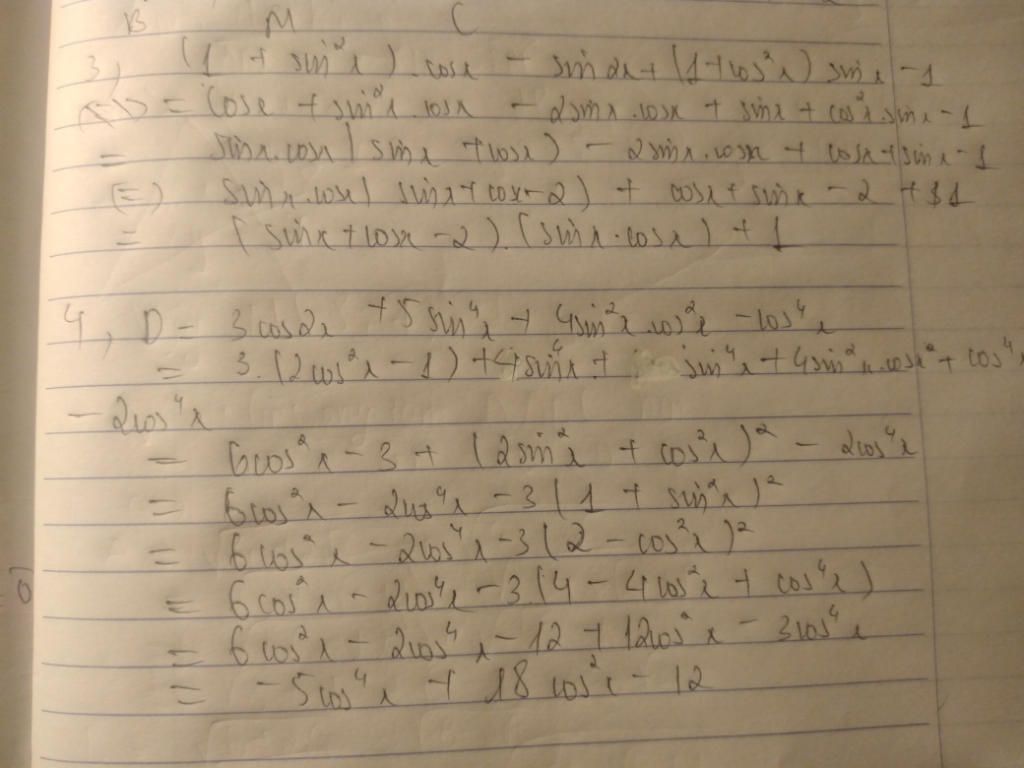 B M C
3, (1 + sin²x).cosx - sin2x + (1+cos²x) sinx - 1
<=> = cosx + sin²x.cosx - 2sinx.cosx + sinx + cos²x.sinx - 1
= sinx.cosx(sinx + cosx) - 2sinx.cosx + cosx + sinx - 1
(=) sinx.cosx(sinx + cosx - 2) + cosx + sinx - 2 + 1
= (sinx + cosx - 2).(sinx.cosx) + 1
4, D = 3cos2x + 5sin⁴x + 4sin²x.cos²x - cos⁴x
= 3.(2cos²x - 1) + 4sin⁴x + sin⁴x + 4sin²x.cosx² + cos⁴x
- 2cos⁴x
= 6cos²x - 3 + (2sin²x + cos²x)² - 2cos⁴x
= 6cos²x - 2cos⁴x - 3(1 + sin²x)²
= 6cos²x - 2cos⁴x - 3(2 - cos²x)²
= 6cos²x - 2cos⁴x - 3(4 - 4cos²x + cos⁴x)
= 6cos²x - 2cos⁴x - 12 + 12cos²x - 3cos⁴x
= -5cos⁴x + 18cos²x - 12